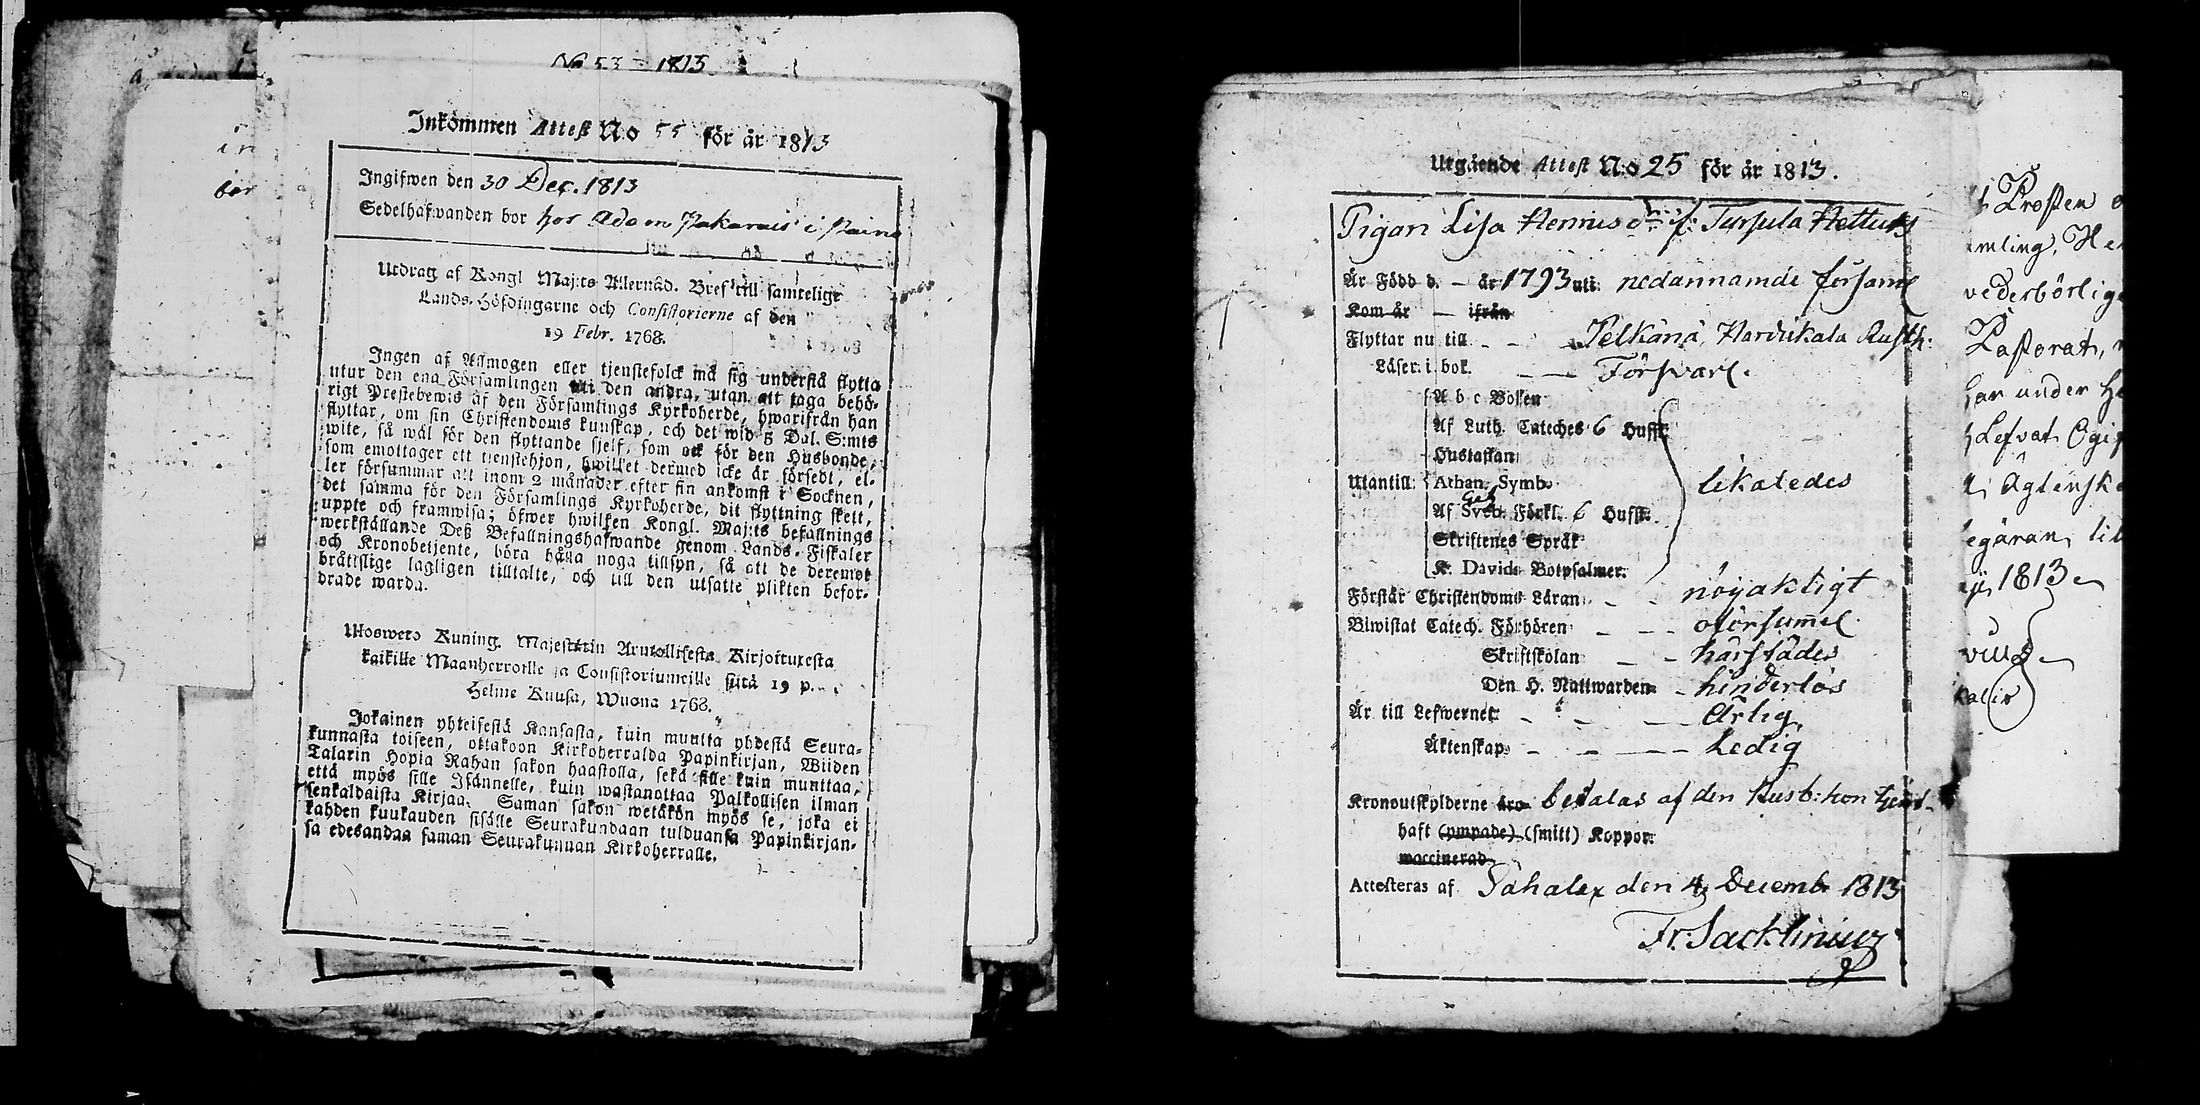 No 53 - 1813
Inkommen Attest No 55 för år 1813
Ingifwen den 30 Dec. 1813
Sedelhafwanden bor hos Adam
Utdrag af Kongl Maj:ts Allernåd. Bref till samtelige
Lands-Höfdingarne och Consistorierne af den
19 Febr. 1768.
Ingen af Allmogen eller tjenstefolck må sig understå flytta
utur den ena Församlingen til den andra, utan att taga behö-
rigt Prestebewis af den Församlings Kyrkoherde, hwarifrån han
flyttar, om sin Christendoms kunskap, och det wid 5 Dal. S:mts
wite, så wäl för den flyttande sjelf, som ock för den Husbonde,
som emottager ett tienstehjon, hwilket dermed icke är försedt, el-
ler försummar att inom 2 månader efter sin ankomst i Socknen,
det samma för den Församlings Kyrkoherde, dit flyttning skett,
uppte och framwisa; öfwer hwilken Kongl. Maj:ts befallnings
werkställande Deß Befallningshafwande genom Lands-Fiskaler
och Kronobetjente, böra hålla noga tillsyn, så att de deremot
bråtslige lagligen tilltalte, och till den utsatte plikten befor-
drade warda.
Uloswero Kuning. Majestetin Armollisesta Kirjoituxesta
kaikille Maanherroille ja Consistoriumeille siitä 19 p.
Helme Kuusa, Wuona 1768.
Jokainen yhteisestä Kansasta, kuin muutta yhdestä Seura-
kunnasta toiseen, ottakoon Kirkoherralda Papinkirjan, Wiiden
Talarin Hopia Rahan sakon haastolla, sekä sille kuin muuttaa,
että myös sille Isännelle, kuin wastanottaa Palkollisen ilman
senkaldaista Kirjaa. Saman sakon wetäkön myös se, joka ei
kahden kuukauden sisälle Seurakundaan tulduansa Papinkirjan-
sa edesandaa saman Seurakunnan Kirkoherralle.
Utgående Attest No 25 för år 1813.
Pigan Lisa Hennus dr. f. Tursula
Är Född d. - år 1793 uti nedannämde församl
Kom år - ifrån
Flyttar nu till - - - Pelkänä, Harvikala Rusth.
Läser: i bok. - - Försvarl.
A b c Boken
Af Luth. Cateches 6 Hufst.
Hustaflan
Utantill Athan. Symb. likaledes
Af Sveb. Förkl. 6 Hufst.
Skriftenes Språk
K. Davids Botpsalmer.
Förstår Christendoms Läran - - nöyaktigt
Biwistat Catech. Förhören - - - oförsummel.
Skriftskolan - - härstädes
Den H. Nattwarden - hinderlös
Är till Lefwernet - - - Ärlig
Äktenskap - - - Ledig
Kronoutskylderne äro betalas af den Husb: hon tjent
haft (ympade) (smitt) Koppor.
waccinerad
Attesteras af Sahalax den 4 Decemb. 1813
Fr: Sacklinius
Prosten
vederbörlig
Pastorat,
har under
egäran
1813